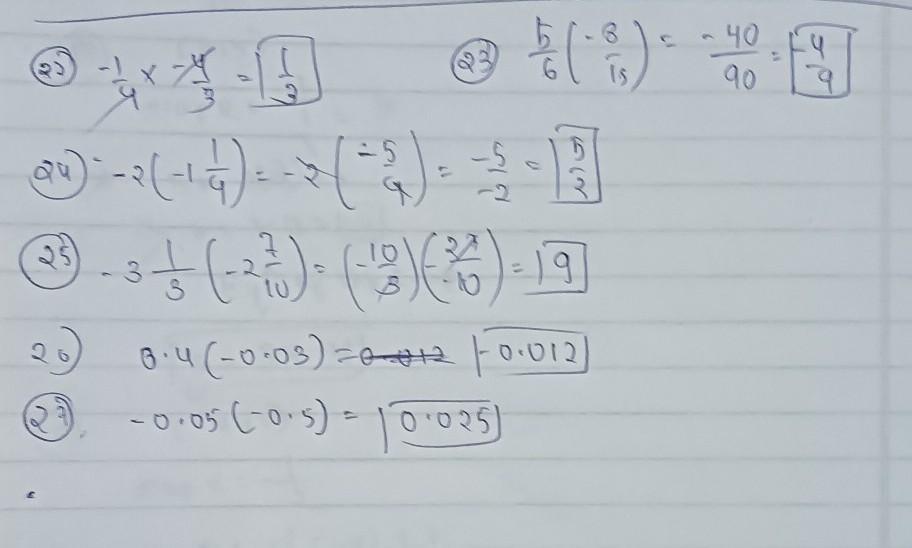 (22) -1/4 × -4/3 = 1/3 (23) 5/6 (-8/15) = -40/90 = -4/9
(24) -2(-1 1/4) = -2(-5/4) = -5/-2 = 5/2
(25) -3 1/3 (-2 7/10) = (-10/3)(-27/10) = 9
26) 0.4(-0.03) = 0.012 -0.012
(27) -0.05(-0.5) = 0.025